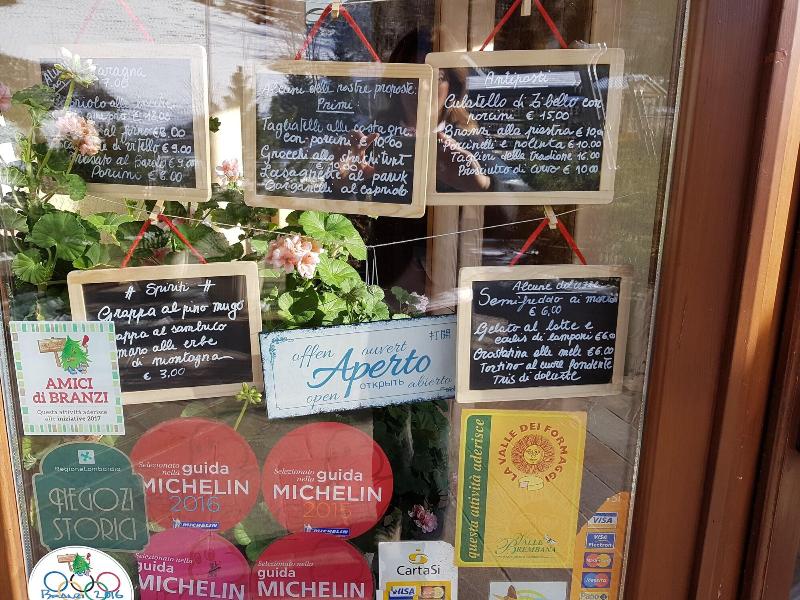 Alcuni delle nostre proposte:
Primi:
Tagliatelle alle castagne
con porcini € 10.00
Gnocchi allo
€ 10.00
Lasagnette al
Garganelli al capriolo
Antipasti
Culatello di Zibello con
porcini € 15.00
Branzi alla piastra € 10.00
e polenta € 10.00
Taglieri della tradione 16.00
Prosciutto di € 10.00
€ 18.00
al forno € 8.00
di vitello € 9.00
al Barolo € 9.00
Porcini € 8.00
# Spiriti #
Grappa al pino mugo
Grappa al sambuco
amaro alle erbe
di montagna
€ 3,00
offen ouvert 打開
Aperto
открыть abierto
open
Alcune
Semifreddo ai
€ 6,00
Gelato al latte e
coulis di lamponi € 6.00
Crostatina alle mele € 6.00
Tortino al cuore fondente
Tris di
AMICI
di BRANZI
Questa attività aderisce
alle iniziative 2017
RegioneLombardia
NEGOZI
STORICI
Selezionato
nella guida
MICHELIN
2016
MICHELIN
Selezionato
nella guida
MICHELIN
2015
MICHELIN
Selezionato
nella guida
MICHELIN
Selezionato
nella guida
MICHELIN
questa attività aderisce
LA VALLE DEI FORMAGGI
VALLE
BREMBANA
Branzi 2016
CartaSi
VISA
VISA
VISA
Electron